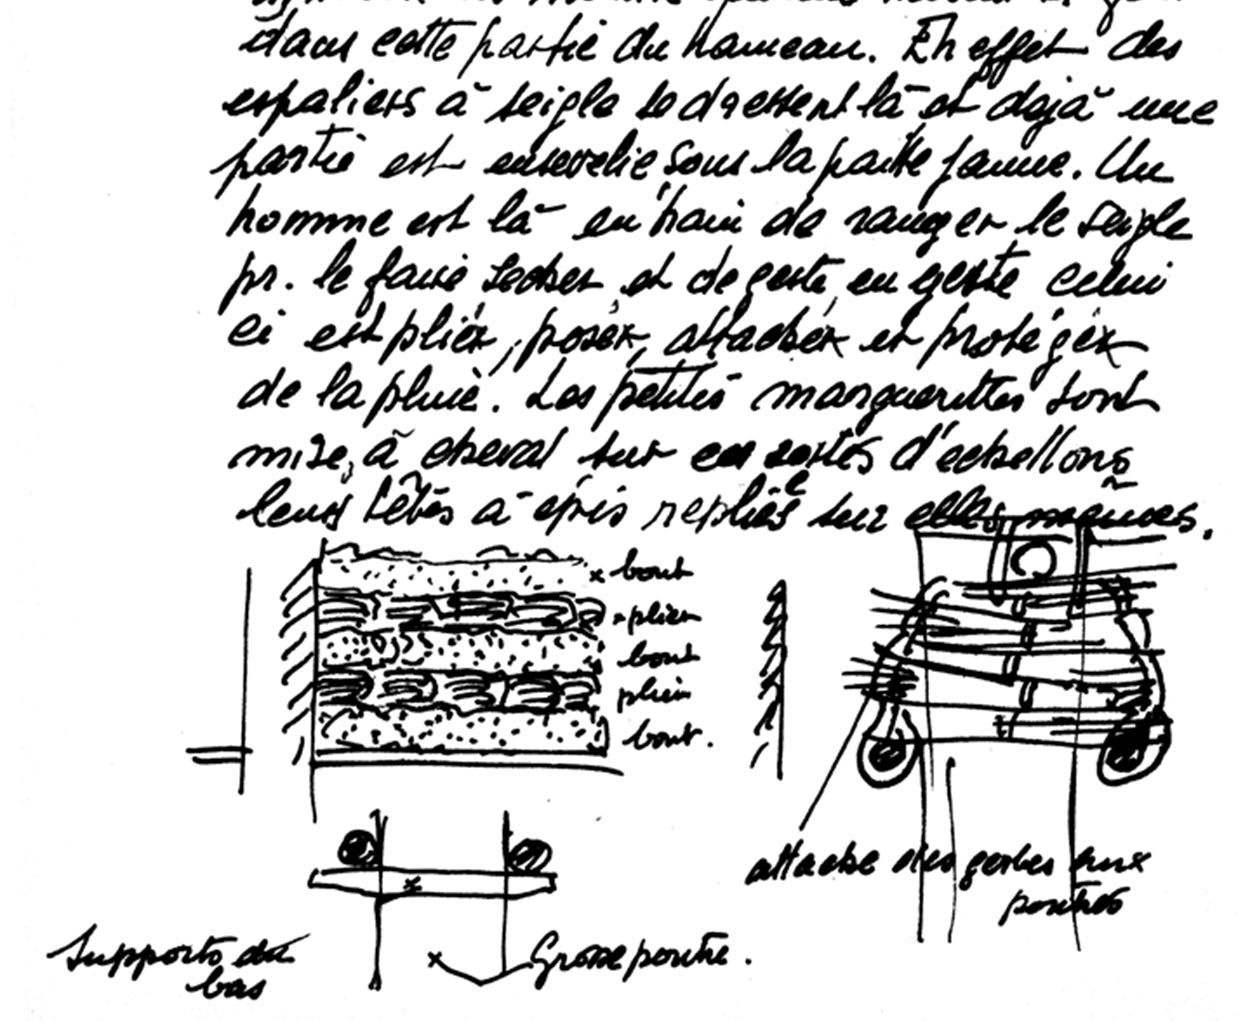 dans cette partie du hameau. En effet des
espaliers à seigle se dressent là et dejà une
partie est ensevelie sous la paille jaune. Un
homme est là en train de ranger le seigle
pr. le faire secher et de geste en geste celui
ci est plier, poser, attacher et protéger
de la pluie. Les petites marguerittes sont
mise à cheval sur ces sortes d'echellons
leurs têtes à épis repliée sur elles mêmes.
x bout
x plien
bout
plein
bout.
attache des gerbes aux
poutres
Supports du
bas
x Grosse poutre.